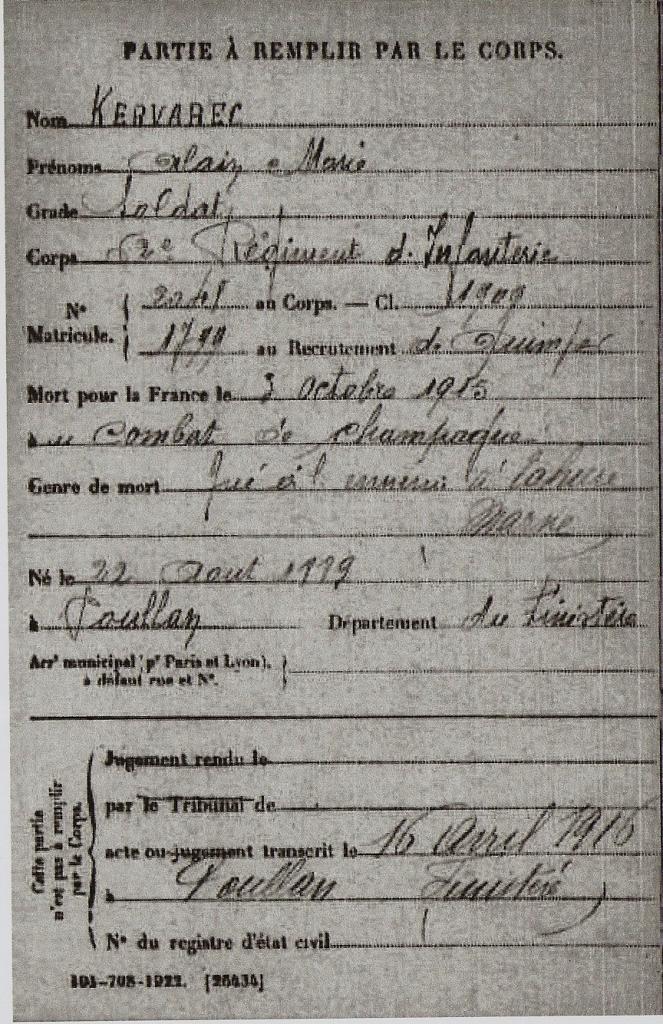 PARTIE À REMPLIR PAR LE CORPS.
Nom KERVAREC
Prénoms Alain Marie
Grade Soldat
Corps 2e Régiment d'Infanterie
N° Matricule. { au Corps. — Cl. 1909
{ au Recrutement de Quimper
Mort pour la France le 3 Octobre 1915
au combat de champagne
Genre de mort Tué à l'ennemi à Tahure
Marne
Né le 22 Aout 1889
à Poullan Département du Finistère
Arrt municipal (pr Paris et Lyon), à défaut rue et N°.
Cette partie n'est pas à remplir par le Corps.
Jugement rendu le
par le Tribunal de
acte ou jugement transcrit le 16 Avril 1916
à Poullan Finistère
N° du registre d'état civil
101-708-1922. [26434]